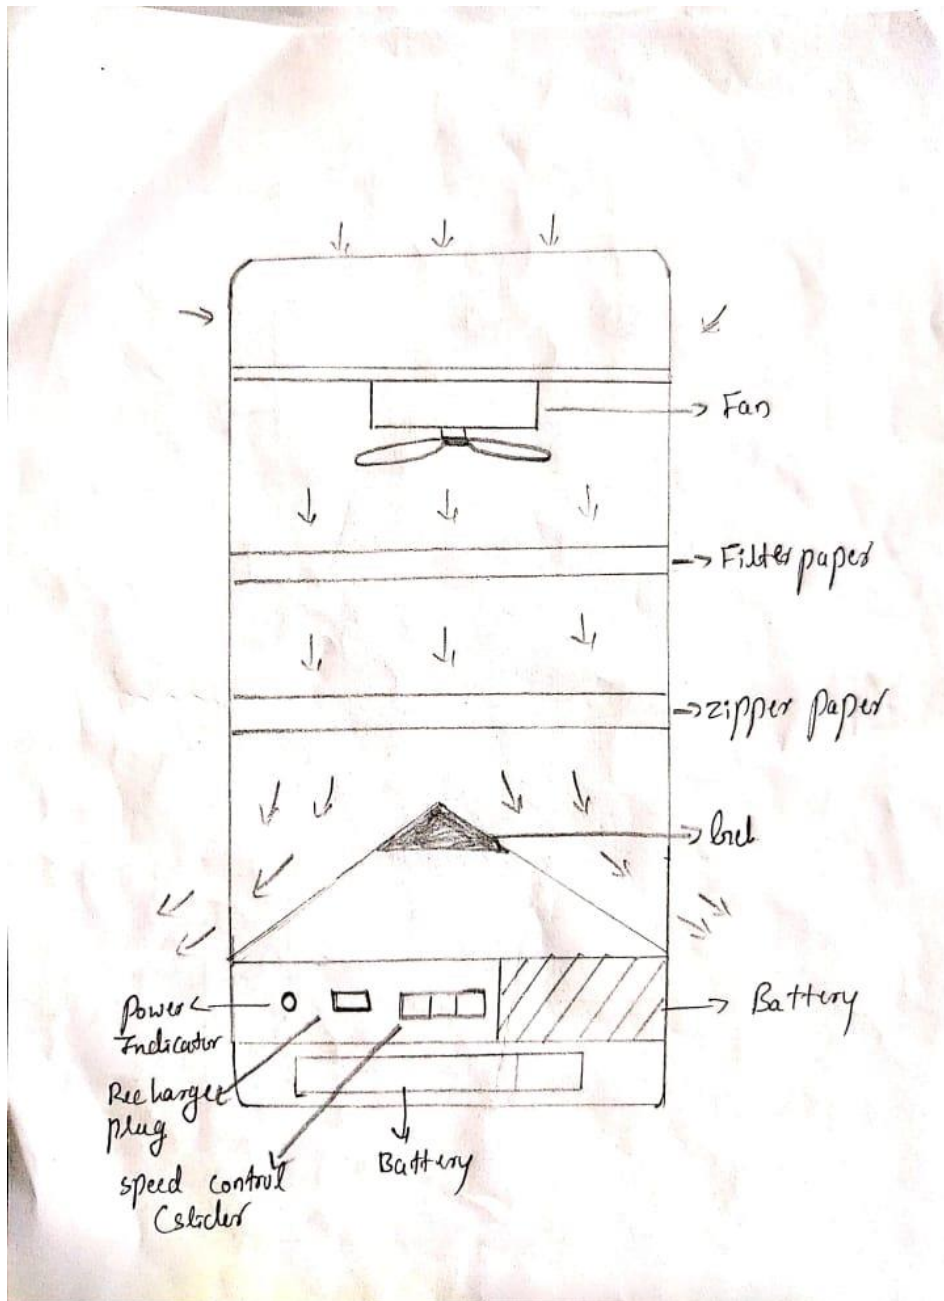 Fan
Filter paper
zipper paper
Battery
Power
Indicator
Recharger
plug
speed control
(slider
Battery